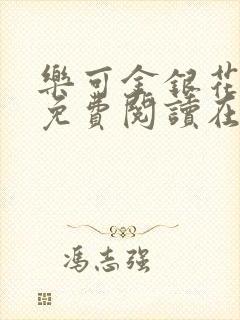 樂可金銀花
免費閱讀在
馮志強